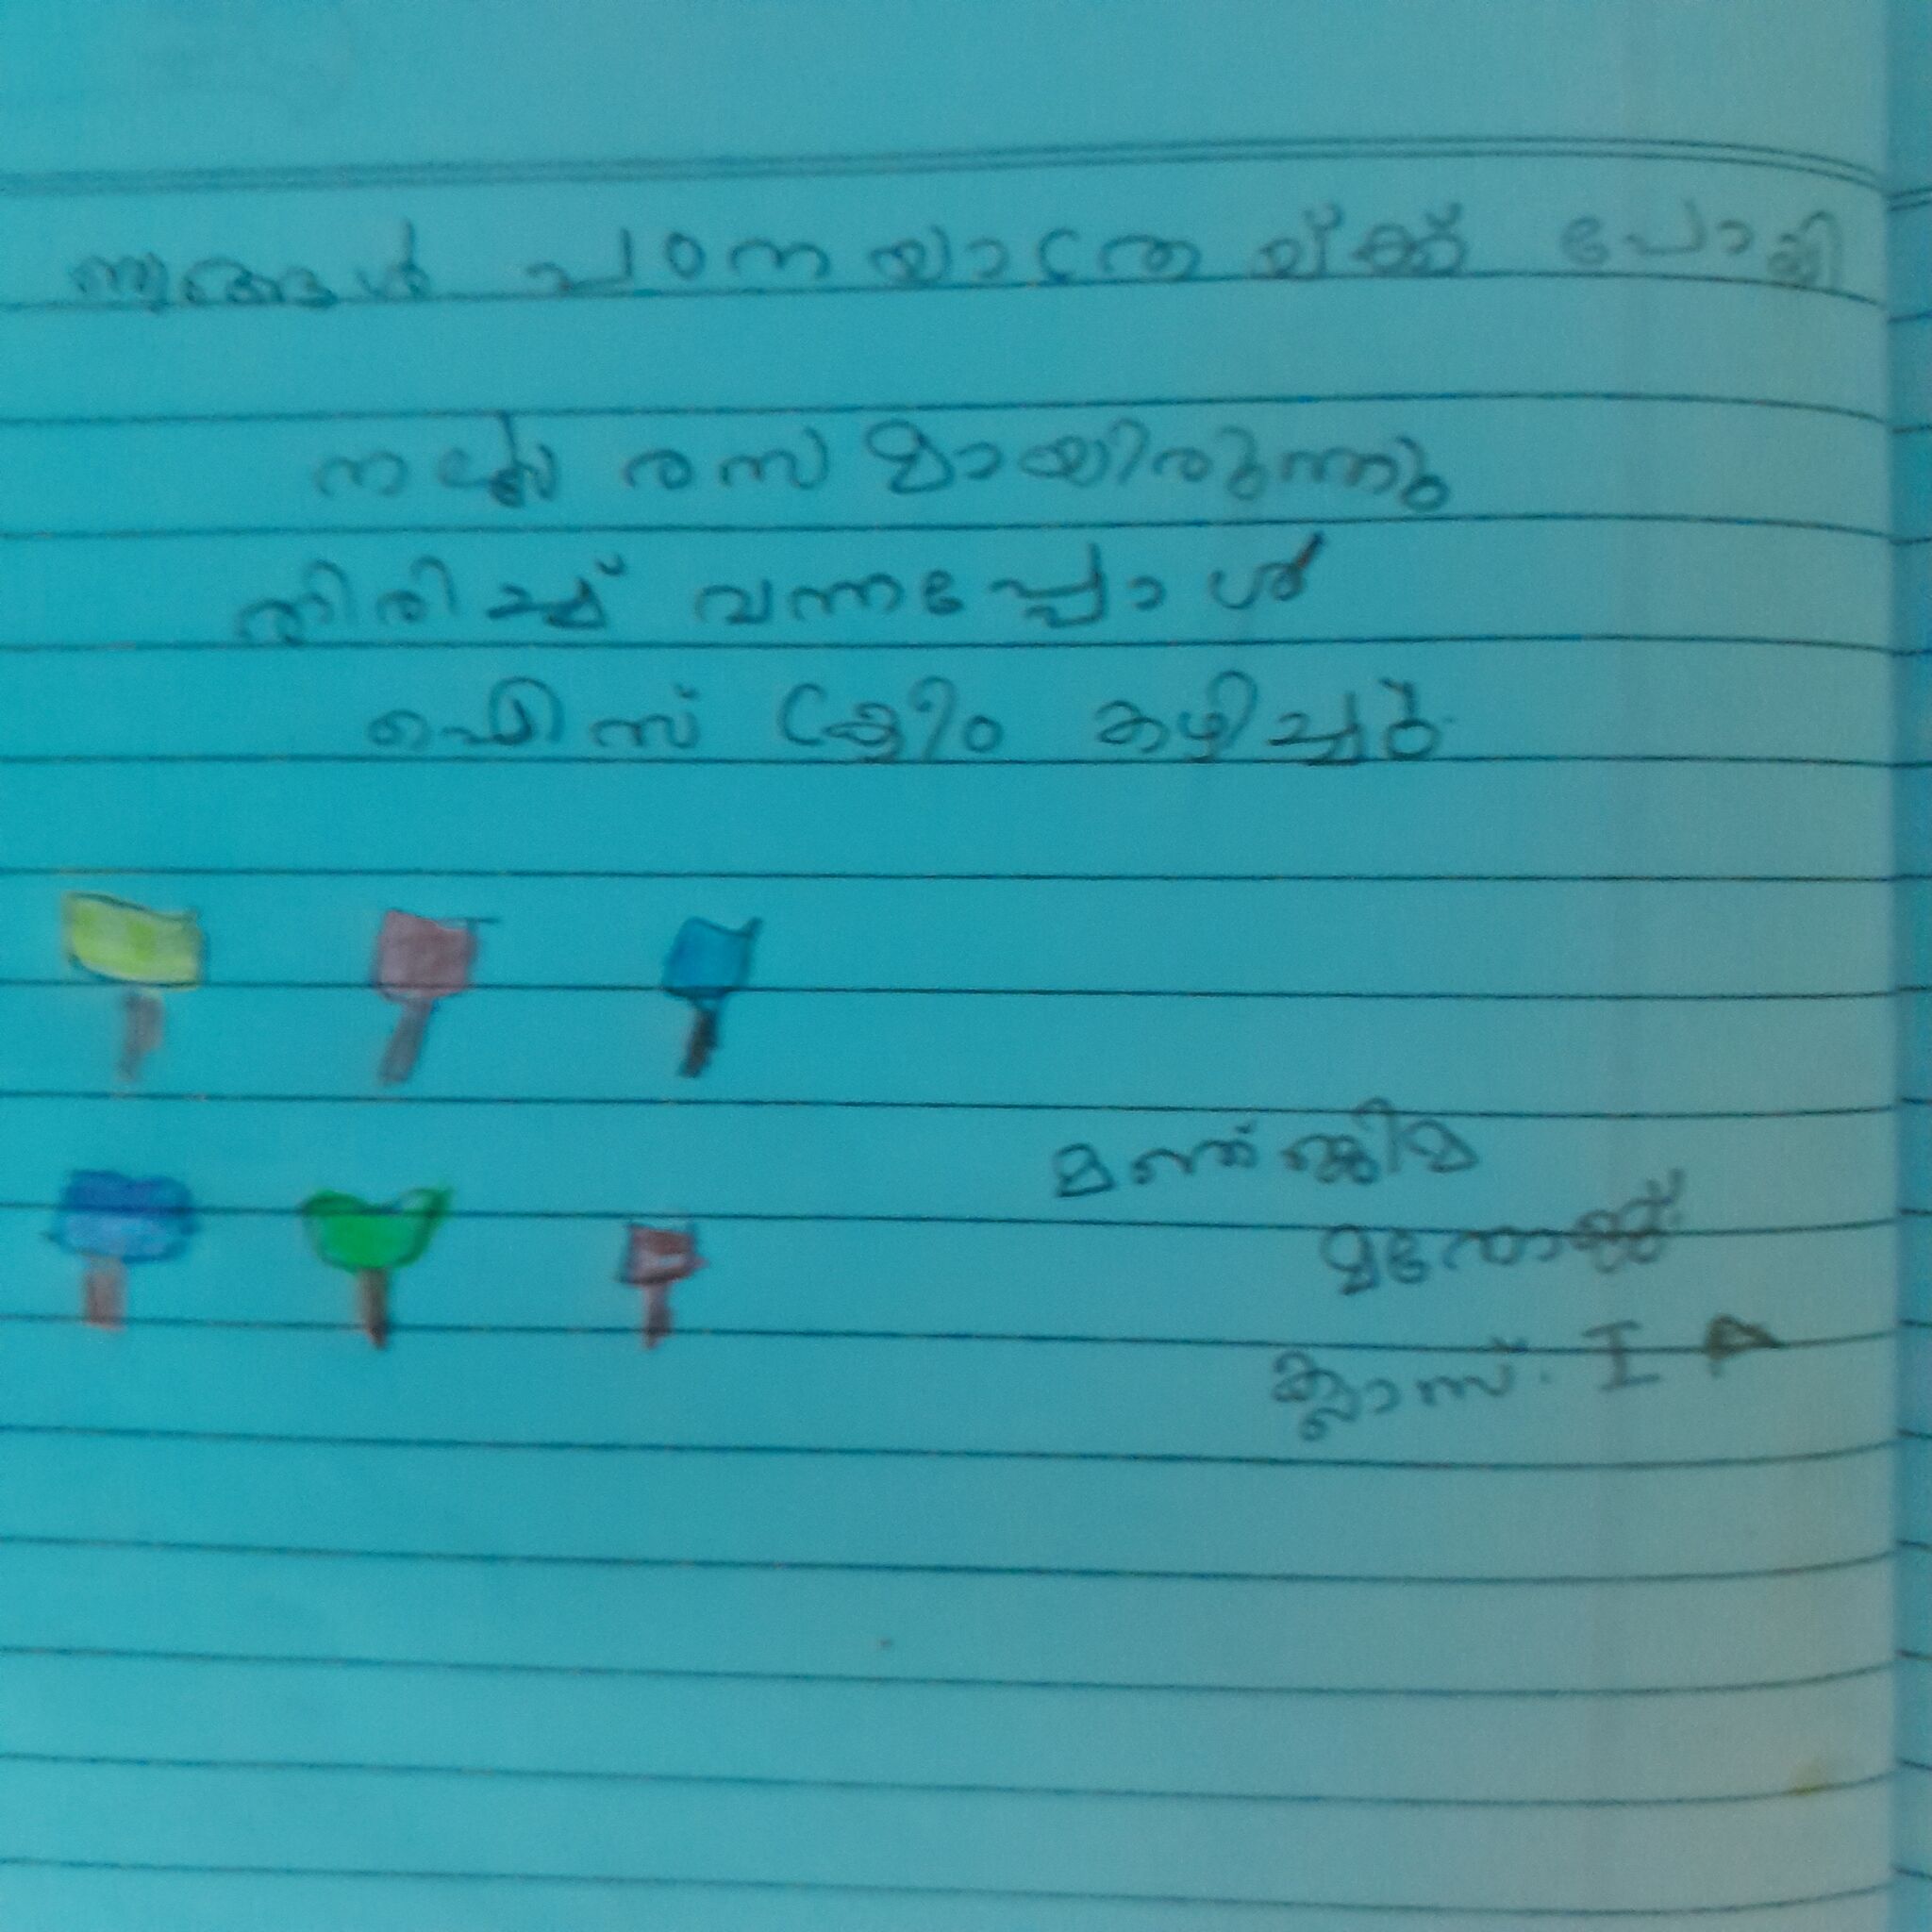 ഞങ്ങൾ പഠനയാത്രയ്ക്ക് പോയി
നല്ല രസമായിരുന്നു
തിരിച്ച് വന്നപ്പോൾ
ഐസ് ക്രീം കഴിച്ചു.
മനോജ്
ക്ലാസ്. I A